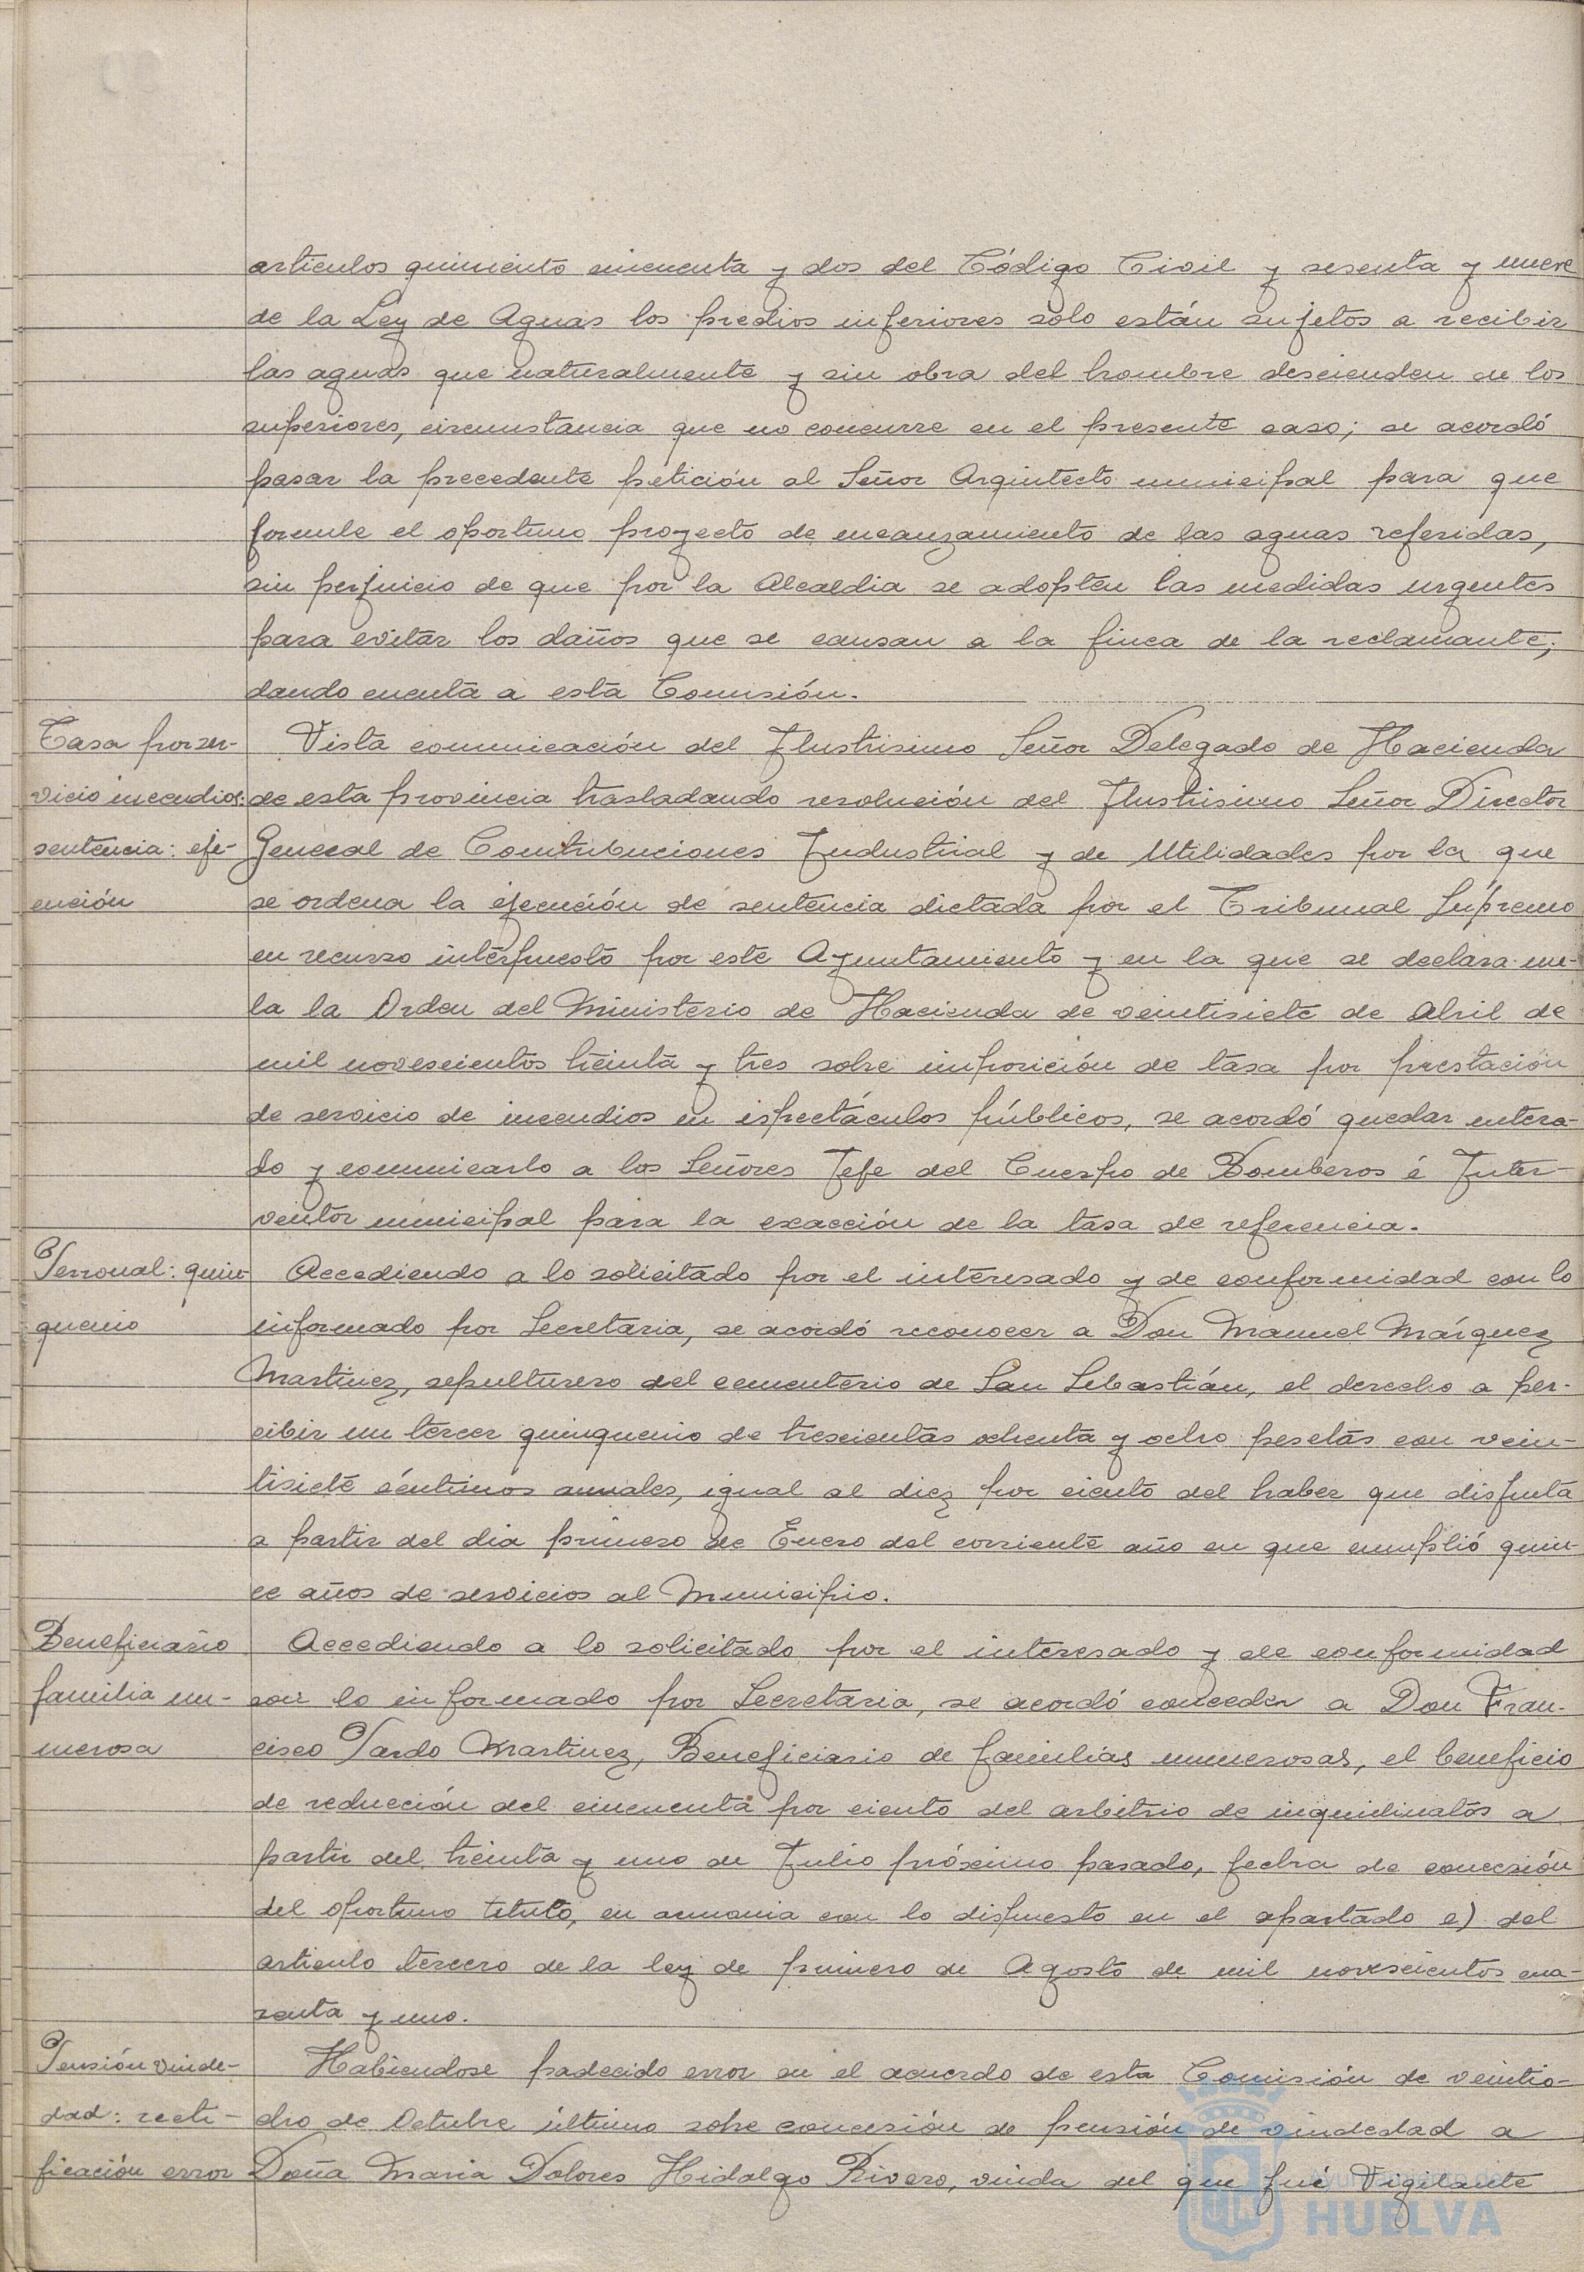 articulos quiniento cincuenta y dos del Código Civil y sesenta y nueve
de la Ley de Aguas los predios inferiores sólo están sujetos a recibir
las aguas que naturalmente y sin obra del hombre descienden de los
superiores, circunstancia que no concurre en el presente caso; se acordó
pasar la precedente petición al Señor Arquitecto municipal para que
formule el oportuno proyecto de encauzamiento de las aguas referidas,
sin perjuicio de que por la Alcaldia se adopten las medidas urgentes
para evitar los daños que se causan a la finca de la reclamante;
dando cuenta a esta Comisión.
Tasa por ser-
vicio incendios:
sentencia: eje-
cución
Vista comunicación del Ilustrisimo Señor Delegado de Hacienda
de esta provincia trasladando resolución del Ilustrisimo Señor Director
General de Contribuciones Industrial y de Utilidades por la que
se ordena la ejecución de sentencia dictada por el Tribunal Súpremo
en recurso interpuesto por este Ayuntamiento y en la que se declara nu-
la la Orden del Ministerio de Hacienda de veintisiete de Abril de
mil novescientos treinta y tres sobre imposición de tasa por prestación
de servicio de incendios en espectáculos públicos, se acordó quedar entera-
do y comunicarlo a los Señores Jefe del Cuerpo de Bomberos é Inter-
ventor municipal para la exacción de la tasa de referencia.
Personal: quin-
quenio
Accediendo a lo solicitado por el interesado y de conformidad con lo
informado por Secretaria, se acordó reconocer a Don Manuel Márquez
Martinez, sepulturero del cementerio de San Sebastián, el derecho a per-
cibir un tercer quinquenio de trescientas ochenta y ocho pesetas con vein-
tisiete céntimos anuales, igual al diez por ciento del haber que disfruta
a partir del dia primero de Enero del corriente año en que cumplió quin-
ce años de servicios al Municipio.
Beneficiario
familia nu-
merosa
Accediendo a lo solicitado por el interesado y de conformidad
con lo informado por Secretaria, se acordó conceder a Don Fran-
cisco Pardo Martinez, Beneficiario de familias numerosas, el beneficio
de reducción del cincuenta por ciento del arbitrio de inquilinatos a
partir del treinta y uno de Julio próximo pasado, fecha de concesión
del oportuno titulo, en armonia con lo dispuesto en el apartado e) del
articulo tercero de la ley de primero de Agosto de mil novescientos cua-
renta y uno.
Pensión viude-
dad: recti-
ficación error
Habiendose padecido error en el acuerdo de esta Comisión de veintio-
cho de Octubre último sobre concesión de pensión de viudedad a
Doña Maria Dolores Hidalgo Rivero, viuda del que fué Vigilante
Ayuntamiento de
HUELVA